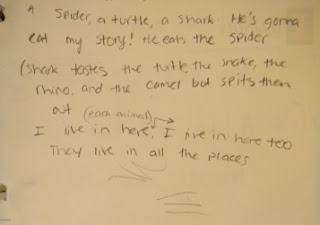 A Spider, a turtle, a Shark. He's gonna
eat my story! He eats the spider
(Shark tastes the turtle, the snake, the
rhino, and the camel but spits them
out (each animal)
I live in here. I live in here too
They live in all the places